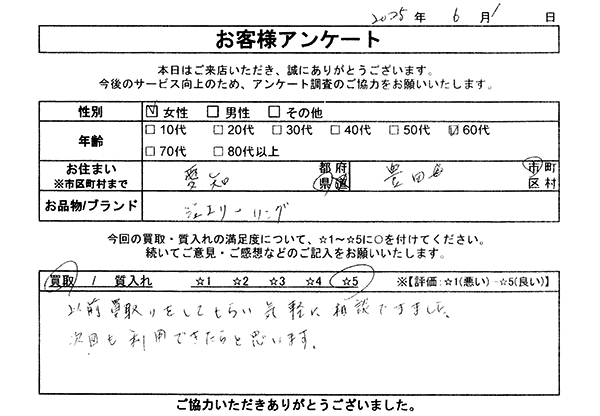 2025 年 6 月 1 日
お客様アンケート
本日はご来店いただき、誠にありがとうございます。
今後のサービス向上のため、アンケート調査のご協力をお願いいたします。
性別 ☑ 女性 □ 男性 □ その他
年齢 □ 10代 □ 20代 □ 30代 □ 40代 □ 50代 ☑ 60代
□ 70代 □ 80代以上
お住まい ※市区町村まで 愛知 都 府 県 道 豊田 市 町 区 村
お品物/ブランド ジュエリーリング
今回の買取・質入れの満足度について、☆1～☆5に○を付けてください。
続いてご意見・ご感想などのご記入をお願いいたします。
買取 / 質入れ ☆1 ☆2 ☆3 ☆4 ☆5 ※【評価:☆1(悪い) -☆5(良い)】
以前買取りをしてもらい気軽に相談できました。
次回も利用できたらと思います。
ご協力いただきありがとうございました。